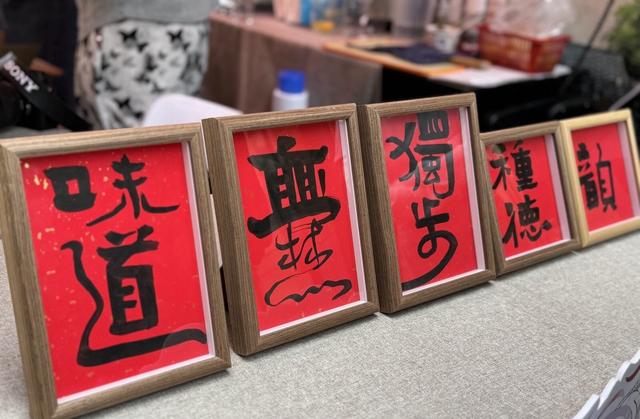 味道
無
獨步
種德
韻
SONY